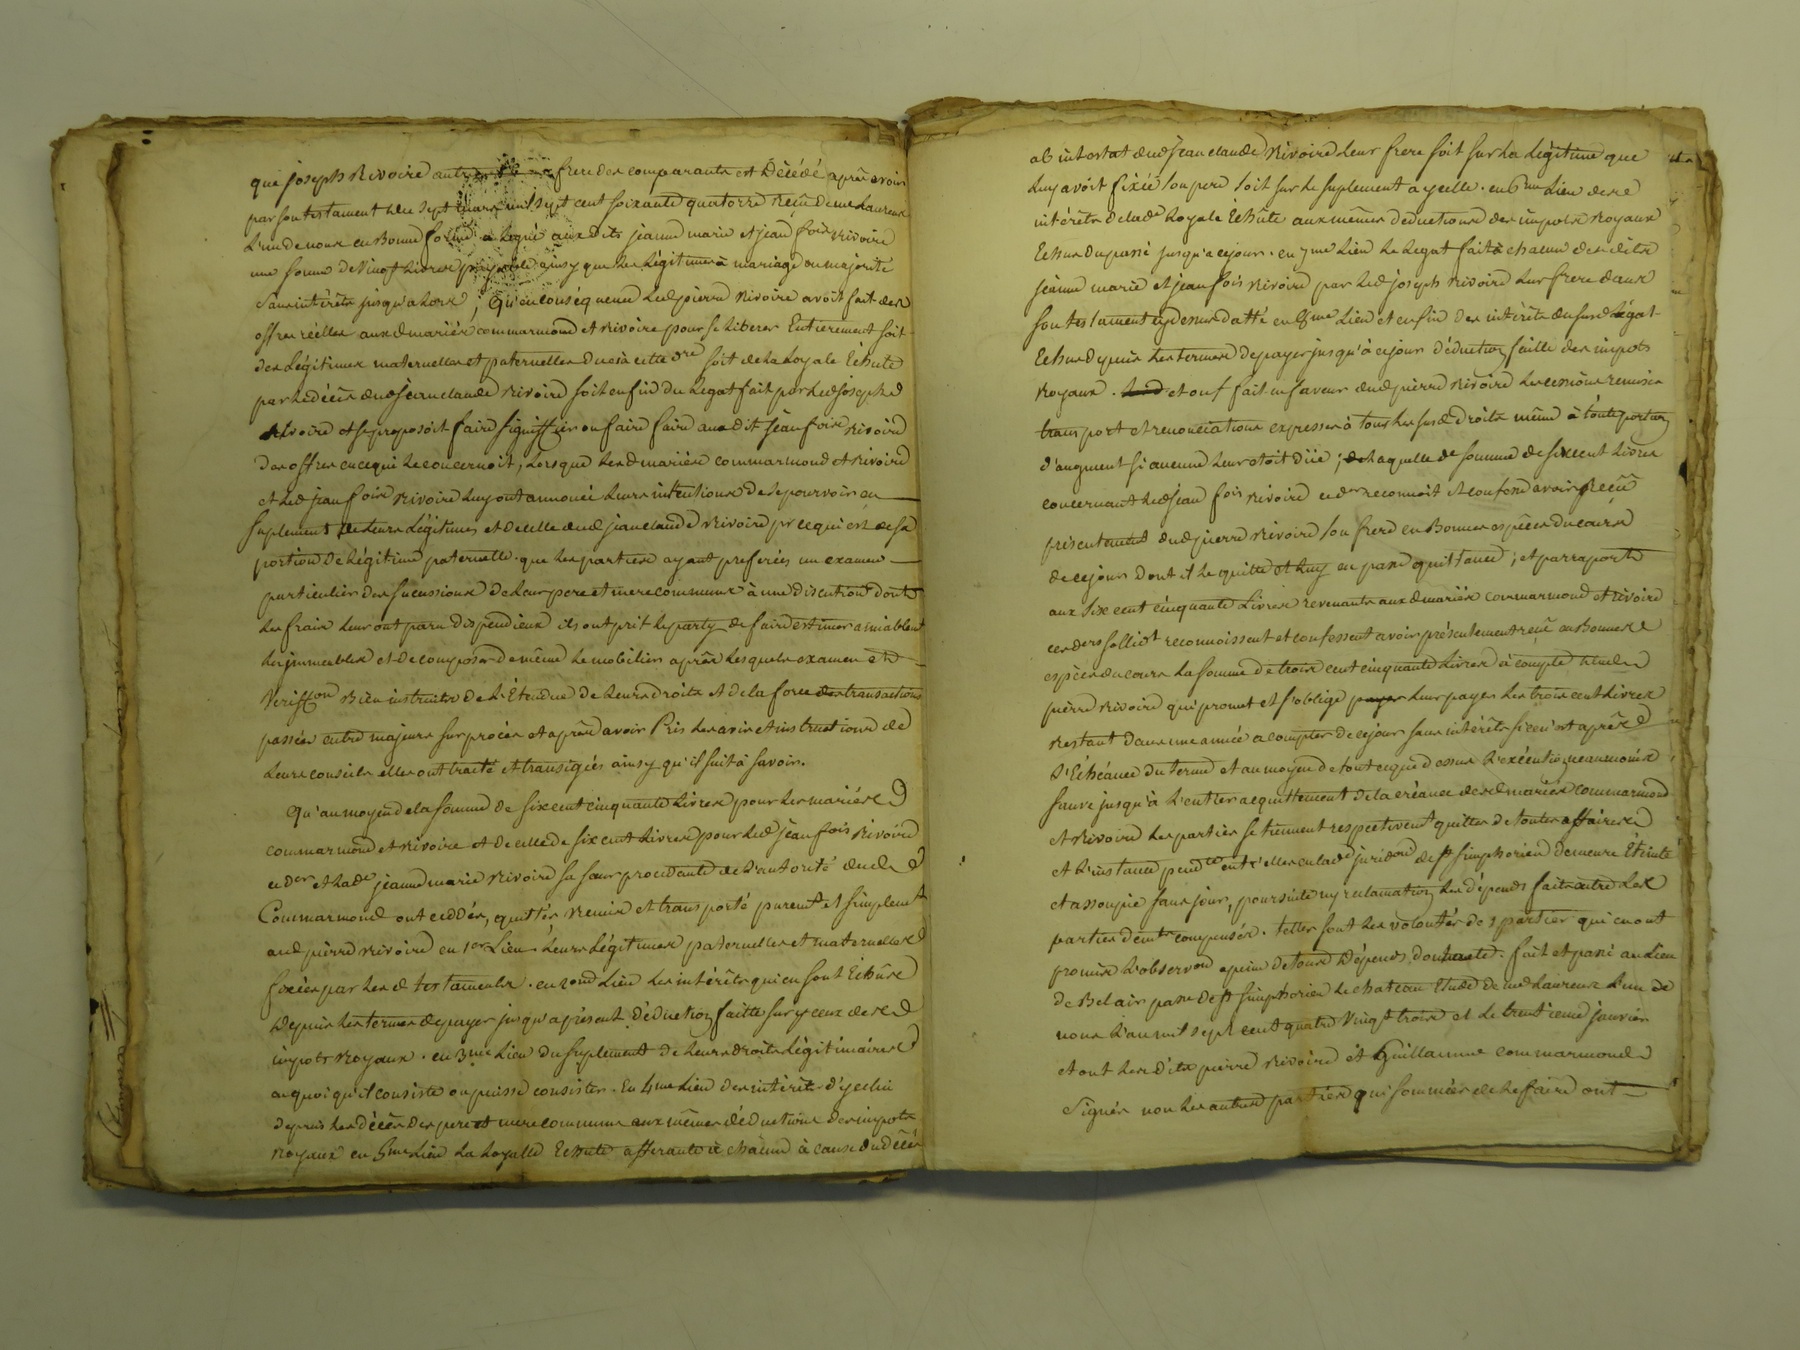 que joseph Rivoire autre frere des comparants est Décédé après avoir
par son testament du sept mars mil sept cent soixante quatorze Reçu de me Laureux
L'un de nous en Bonne forme a légué aux dits jeanne marie et jean fois Rivoire
une somme de Vingt Livres payable ainsy que les Légitimes à mariage ou majorité
sans intérêts jusqu'alors ; Qu'en conséquence led pierre Rivoire avoit fait des
offres réelles aux d mariés commarmond et Rivoire pour se liberer Entierement soit
des Légitimes maternelles et paternelles du cà cette dre soit de la Loyale Echute
par le décès dud jean claude Rivoire soit enfin du Legat fait par led joseph
Rivoire et se proposoit faire signiffier ou faire faire aud dit jean fois Rivoire
des offres en ce qui le concernoit, Lorsque les d mariés commarmond et Rivoire
et led jean fois Rivoire luy ont annoncé leurs intentions de se pourvoir en
suplement de Leurs Légitimes et de celle dud jean claude Rivoire pr ce qui est de sa
portion de Légitime paternelle. que les parties ayant preferées un examen
particulier des sucessions de Leur pere et mere communs à une discution dont
les frais leur ont paru dispendieux ils ont prit le party de faire estimer amiablemt
les immeubles et de composer de même le mobilier après lesquels examen et
Veriffon Bien instruits de L'Étendue de Leurs droits et de la force des transactions
passées entre majeurs sur procès et après avoir Pris les avis et instructions de
Leurs conseils elles ont traité et transigées ainsy qu'il suit à savoir.
Qu'au moyen de la somme de six cent cinquante Livres pour les mariés
commarmond et Rivoire et de celle de six cent Livres pour led jean fois Rivoire
ce der et lade jeanne marie Rivoire sa sœur procedante de L'autorité dud
Commarmond ont cedées, quittés, Remis et transporté puremt et simplemt
aud pierre Rivoire en 1er Lieu Leurs Légitimes paternelles et maternelles
fixées par les d testaments. en 2ond Lieu les intérêts qui en sont Échus
Depuis les termes de payer jusqu'apresent Déduction faitte sur yceux des
impots Royaux. en 3me Lieu du suplement de Leurs droits Légitimaires
a quoi qu'il consiste ou puisse consister. En 4me Lieu des intérêts d'ycelui
depuis les décès des pere et mere communs aux mêmes déductions des impots
Royaux en 5me Lieu La Loyalle Echute afferante à chacun à cause du décès
ab intestat dud jean claude Rivoire Leur frere soit sur la Légitime que
luy avoit fixée son pere soit sur le suplement a ycelle. en 6me Lieu des
intérêts de lade Loyale Échute aux mêmes deductions des impots Royaux
Echus du passé jusqu'a ce jour. en 7me Lieu le Legat fait à chacun desdits
jeanne marie et jean fois Rivoire par led joseph Rivoire leur frere dans
son testament cy dessus datté en 8me Lieu et enfin des intérêts du susd Légat
Echus depuis les termes de payer jusqu'à ce jour déduction faitte des impots
Royaux. et ont fait en faveur dud pierre Rivoire les cessions remises
transport et renonciations expresses à tous les susd droits même à toute portion
d'augment si aucune Leur étoit düe ; de laquelle de somme de six cent Livres
concernant led jean fois Rivoire ce der reconnoit et confesse avoir Reçû
présentement dud pierre Rivoire son frere en Bonnes espèces du cours
de ce jour dont il le quitte et luy en passe quittance ; et par raport
aux six cent cinquante Livres revenants aux d mariés commarmond et Rivoire
ces ders sollidt reconnoissent et confessent avoir présentement reçu en Bonnes
espèces du cours La somme de trois cent cinquante Livres à compte dud
pierre Rivoire qui promet et s'oblige leur payer les trois cent Livres
Restant dans une année a compter de ce jour sans intérêts si ce n'est après
L'Echéance du terme et au moyen de tout ce que dessus L'exécution neanmoins
sauve jusqu'à L'entier acquittement de la créance des d mariés commarmond
et Rivoire les parties se tiennent respectivemt quittes de toutes affaires
et L'instance pendte entr'elles en lade juridon de st simphorien demeure Éteinte
et assoupie sans jour, poursuite ny reclamation les dépends faits entre les
parties demts compensés. telles sont les volontés des parties qui en ont
promise L'observon apeine de tous dépends dont acte. fait et passé au lieu
de Bel air passe de st simphorien le chateau Etude de me Laureux L'un de
nous L'an mil sept cent quatre Vingt trois et le trentieme janvier
et ont lesdits pierre Rivoire et Guillaume commarmond
signés non les autres parties qui sommées de le faire ont